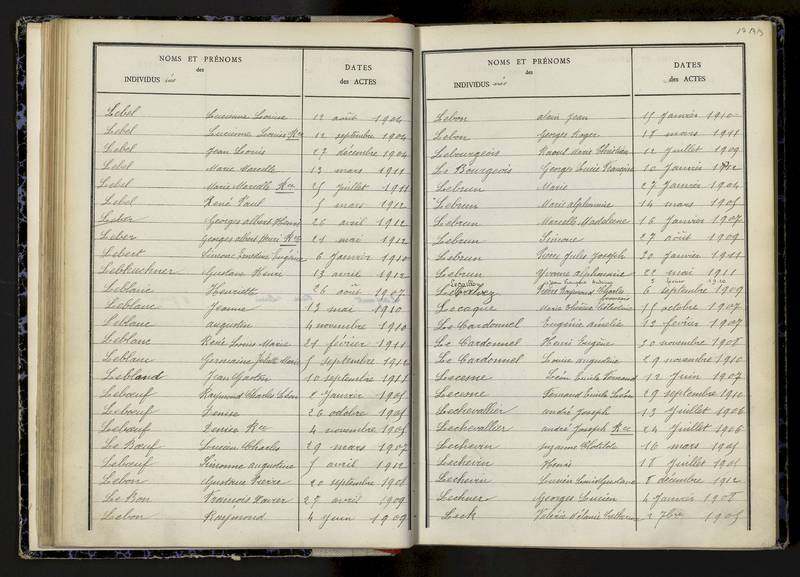 NOMS ET PRÉNOMS
des
INDIVIDUS nés
DATES
des ACTES
Lebel Lucienne Louise 12 août 1904
Lebel Lucienne Louise Rce 12 septembre 1904
Lebel Jean Louis 27 décembre 1904
Lebel Marie Marcelle 13 mars 1911
Lebel Marie Marcelle Rce 25 juillet 1911
Lebel René Paul 5 mars 1912
Leber Georges albert Henri 26 avril 1912
Leber Georges albert Henri Rce 21 mai 1912
Lebert Simone Ernestine Eugénie 6 janvier 1910
Lebkuchner Gustave Henri 13 avril 1912
Leblanc Henriette 26 août 1907
Leblanc Jeanne 13 mai 1910
Leblanc augustin 4 novembre 1910
Leblanc René Louis Marie 21 février 1911
Leblanc Germaine Juliette Marie 5 septembre 1912
Lebland Jean Gaston 10 septembre 1911
Lebœuf Raymond Charles Léon 2 janvier 1905
Lebœuf Denise 26 octobre 1905
Lebœuf Denise Rce 4 novembre 1905
Le Bœuf Lucien Charles 29 mars 1907
Lebœuf Simonne augustine 5 avril 1912
Lebon Gustave Pierre 20 septembre 1908
Le Bon François Xavier 27 avril 1909
Lebon Raymond 4 juin 1909
NOMS ET PRÉNOMS
des
INDIVIDUS nés
DATES
des ACTES
Lebon alain Jean 15 janvier 1910
Lebon Georges Roger 18 mars 1911
Lebourgeois Raoul Christian 12 juillet 1909
Le Bourgeois Georges Lucie François 10 janvier 1912
Lebrun Marie 27 janvier 1904
Lebrun Marie alphonsine 14 mars 1905
Lebrun Marcelle Madeleine 16 janvier 1907
Lebrun Simone 27 août 1909
Lebrun Pierre Jules Joseph 20 janvier 1911
Lebrun Yvonne alphonsine 22 mai 1911
Raymond Charles 6 septembre 1909
Lecagne Marie Thérèse Célestine 15 octobre 1907
Le Cardonnel Eugénie amélie 13 février 1907
Le Cardonnel Henri Eugène 20 novembre 1908
Le Cardonnel Louise augustine 29 novembre 1910
Lecesne Léon Emile Fernand 12 juin 1907
Lecesne Fernand Emile 29 septembre 1910
Lechevallier andré Joseph 13 juillet 1906
Lechevallier andré Joseph Rce 24 juillet 1906
Lechevin Suzanne Clotilde 16 mars 1905
Lechevin Henri 18 juillet 1905
Lechevin Lucien Louis Gustave 8 décembre 1912
Lechner Georges Lucien 4 janvier 1908
Leck Valérie Mélanie Catherine 2 7bre 1905